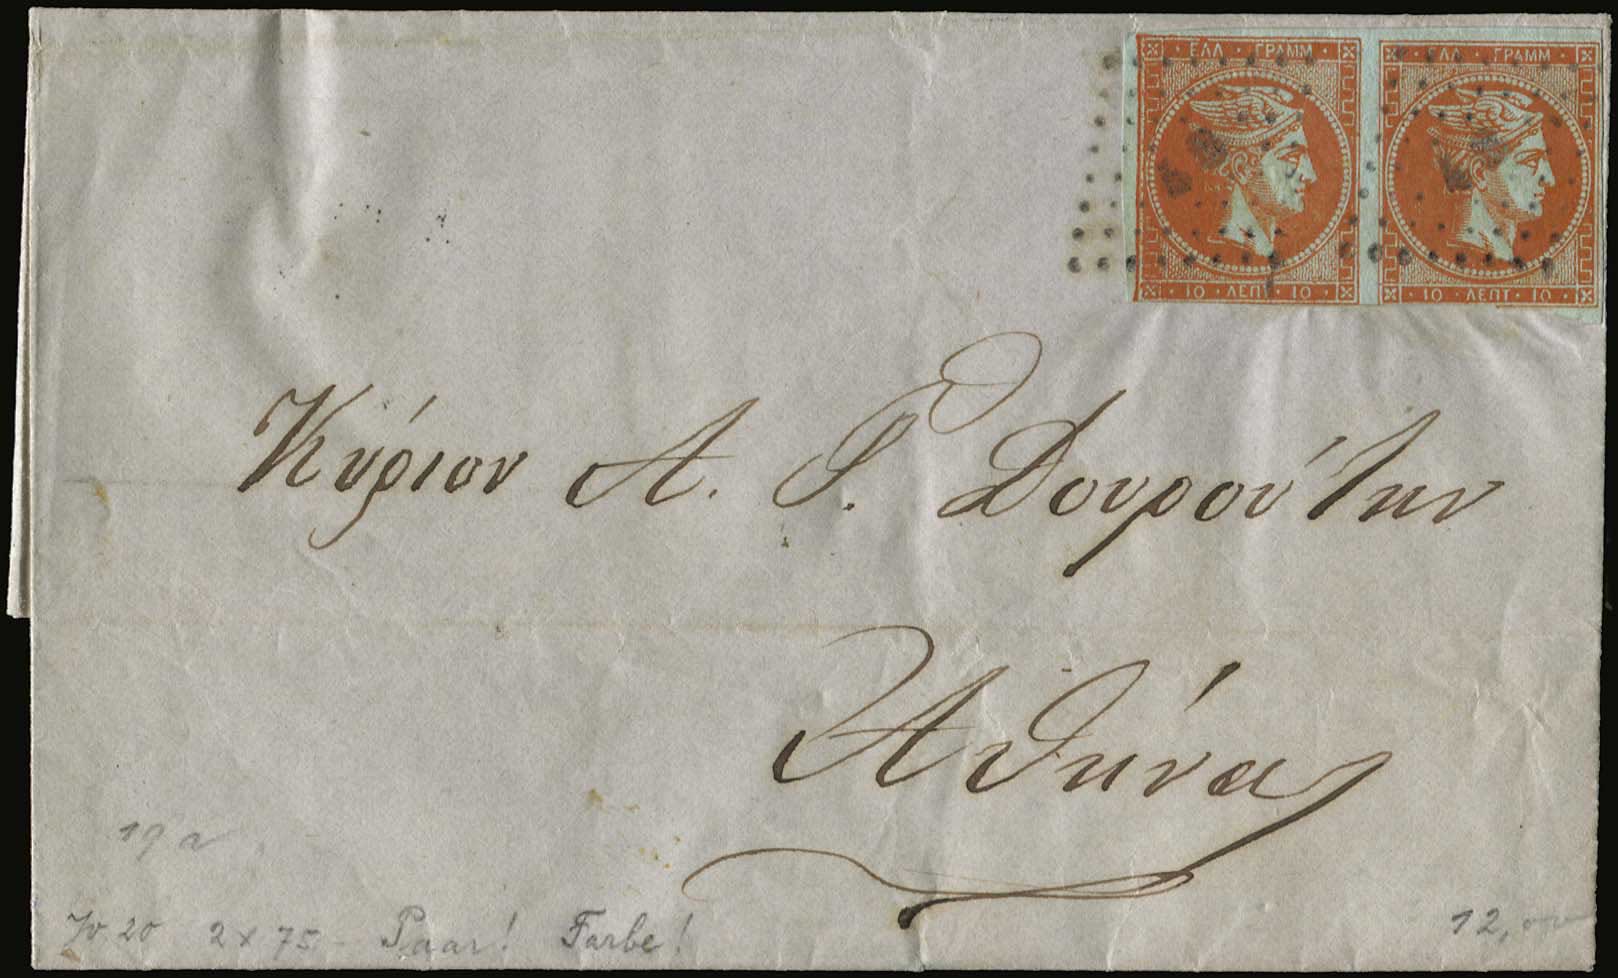 ΕΛΛ · ΓΡΑΜΜ ΕΛΛ · ΓΡΑΜΜ
10 · ΛΕΠΤ · 10 10 · ΛΕΠΤ · 10
Κύριον Α. Γ. Δουρούτην
Ἀθήνας
19 a
Yv 20 2 x 75 - Paar! Farbe! 12,00